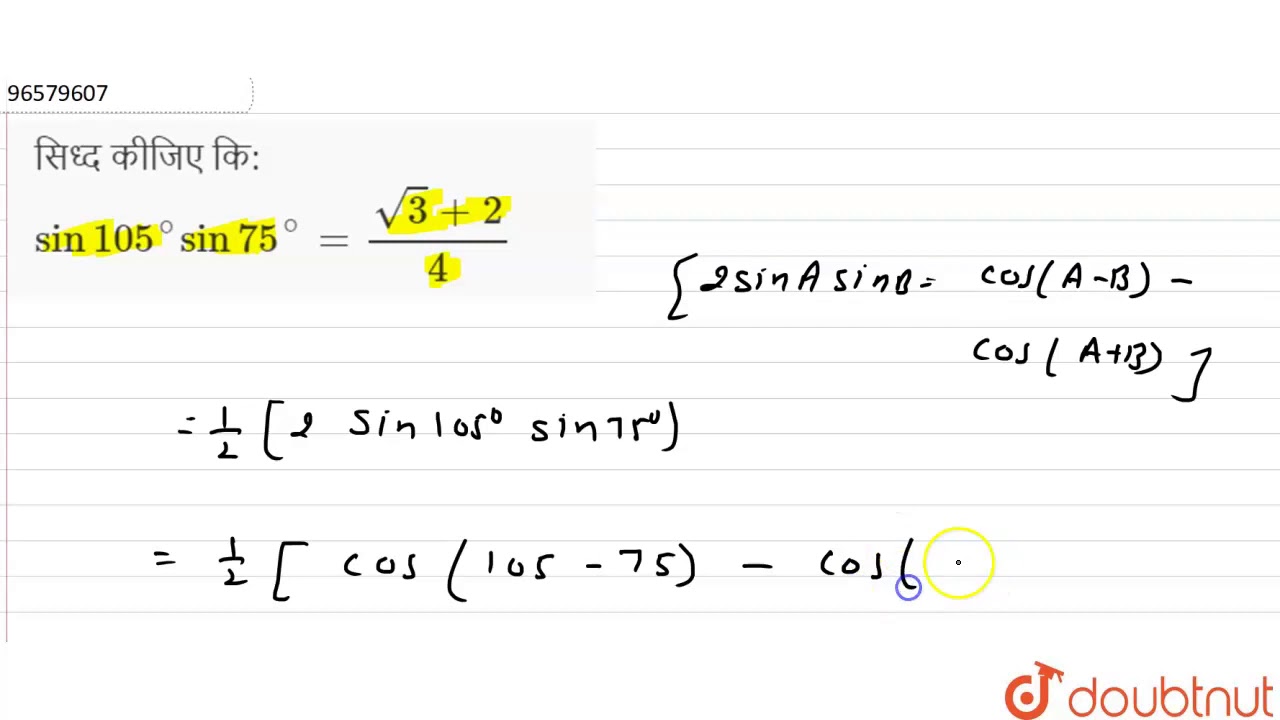 96579607
सिध्द कीजिए कि:
sin 105° sin 75° = (√3 + 2)/4
[2 sin A sin B = cos(A-B) -
cos(A+B)]
= 1/2 [2 sin 105° sin 75°)
= 1/2 [cos(105 - 75) - cos(
doubtnut